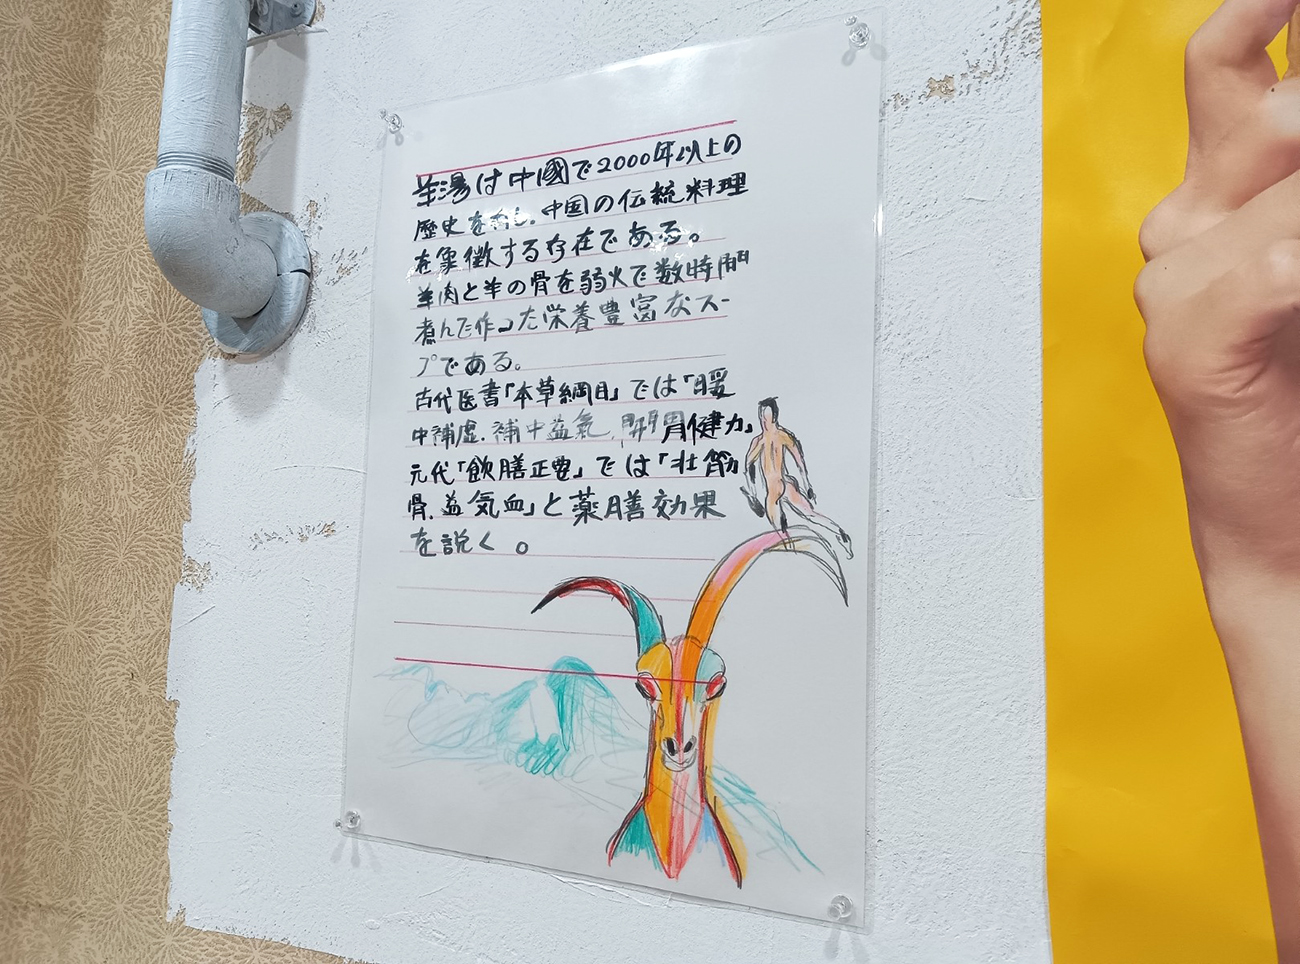 羊湯は中國で2000年以上の
歴史を有し、中国の伝統料理
を象徴する存在である。
羊肉と羊の骨を弱火で数時間
煮んで作った栄養豊富なスー
プである。
古代医書「本草綱目」では「暖
中補虚、補中益気、開胃健力」
元代「飲膳正要」では「壮筋
骨、益気血」と薬膳効果
を説く。